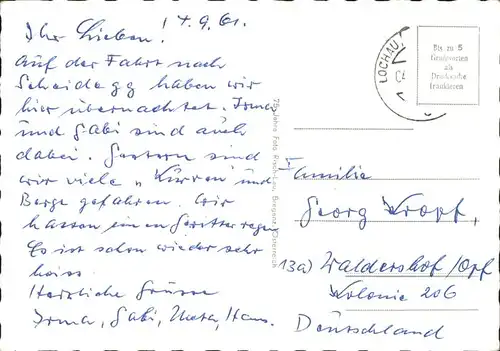 17.9.61.
Ihr Lieben!
Auf der Fahrt nach
Scheidegg haben wir
hier übernachtet. Irma
und Gabi sind auch
dabei. Gestern sind
wir viele „Kurven" und
Berge gefahren. Wir
hatten einen Gewitterregen
Es ist schon wieder sehr
heiss.
Herzliche Grüsse
Irma, Gabi, Hans.
LOCHAU
Bis zu 5
Grußworten
als
Drucksache
frankieren
75 Jahre Foto Bregenz, Österreich
Familie
Georg Kropf,
13a) Waldershof /Opf
Kolonie 206
Deutschland